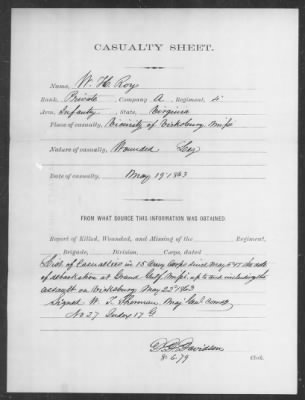 CASUALTY SHEET.
Name, W. H. Roy
Rank, Private Company A, Regiment, 4"
Arm, Infantry, State, Virginia
Place of casualty, Vicinity of Vicksburg Miss
Nature of casualty, Wounded Leg
Date of casualty, May 19" 1863
FROM WHAT SOURCE THIS INFORMATION WAS OBTAINED.
Report of Killed, Wounded, and Missing of the Regiment,
Brigade, Division, Corps, dated
List of Casualties in 15 Army Corps since May 5" 63 date
of debarkation at Grand Gulf Miss. up to and including the
assault on Vicksburg May 22" 1863
Signed W. T. Sherman, Maj Genl Comdg
No 27 Index 17 G
Davidson
8/6/79 Clerk.